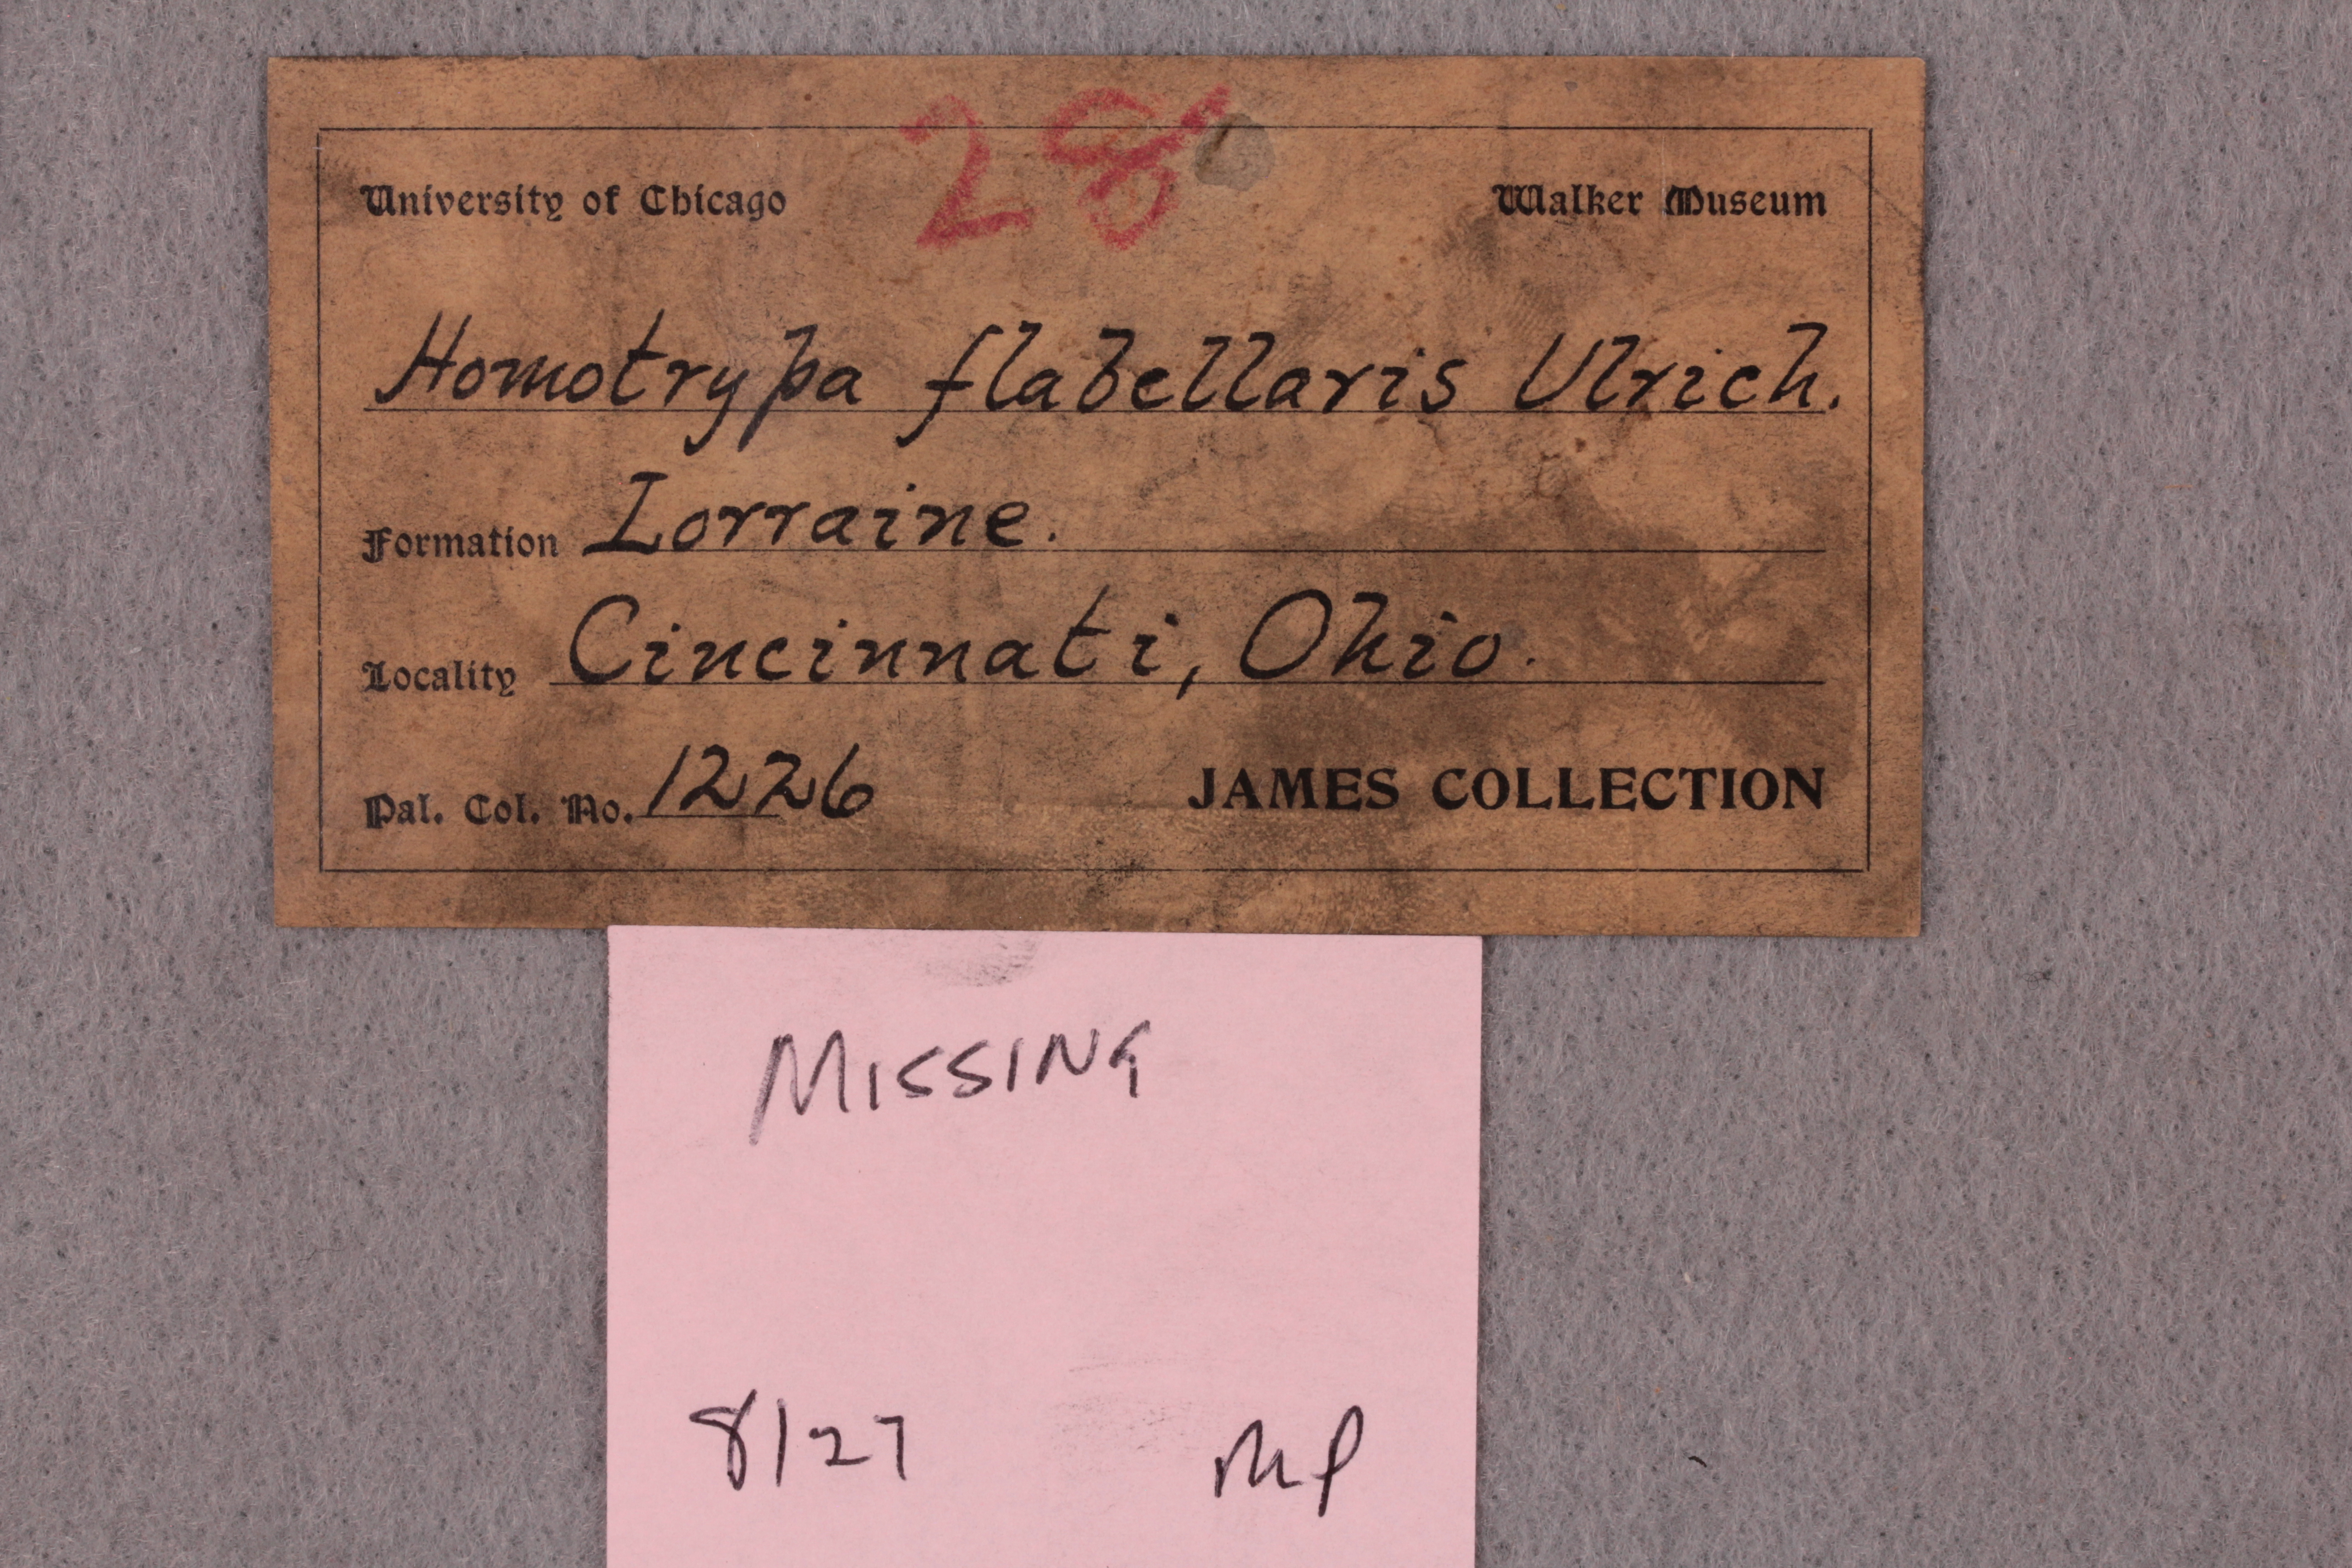 28
University of Chicago Walker Museum
Homotrypa flabellaris Ulrich.
Formation Lorraine.
Locality Cincinnati, Ohio.
Pal. Col. No. 1226 JAMES COLLECTION
MISSING
8/27 MP